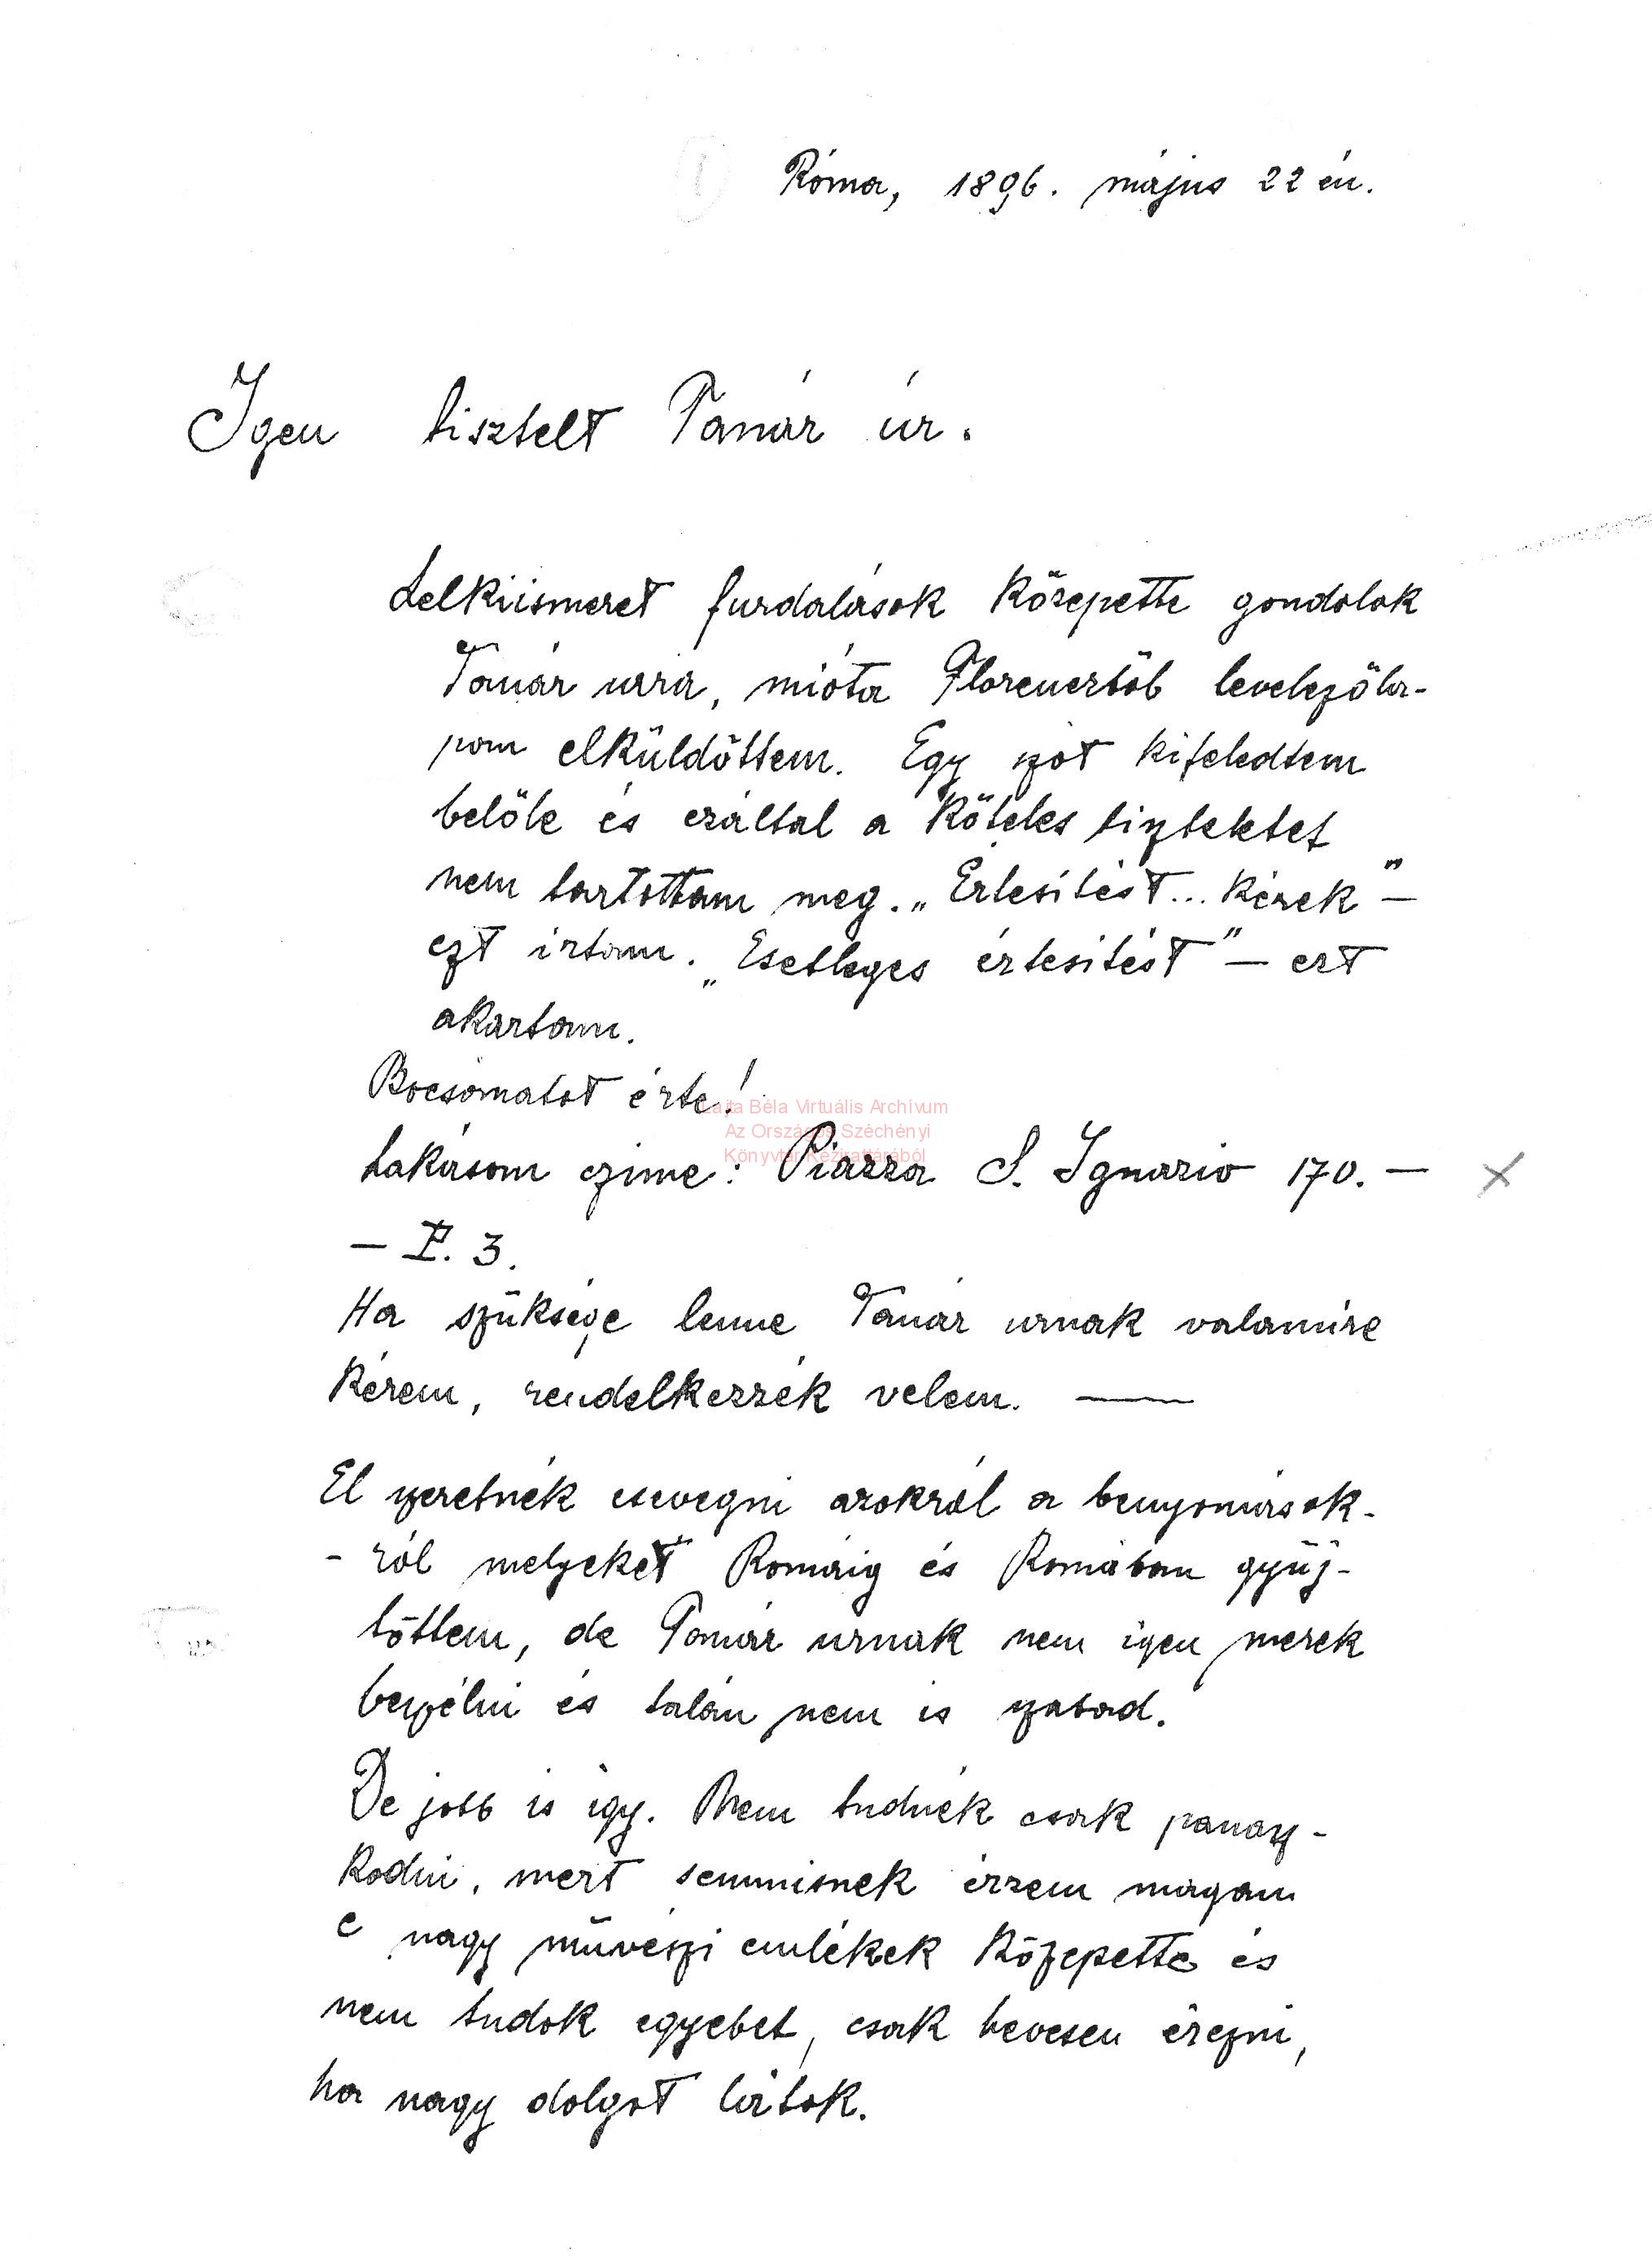 Róma, 1896. május 22 én.
Igen tisztelt Tanár úr.
Lelkiismeret furdalások közepette gondolok
Tanár urra, mióta Florenczből levelezőla-
pom elküldöttem. Egy szót kifeledtem
belőle és ezáltal a köteles tiszteletet
nem tartottam meg. „Értesitést... kérek” —
ezt irtam. „Esetleges értesitést” — ezt
akartam.
Bocsánatot érte!
Lajta Béla Virtuális Archívum
Az Országos Széchényi
Könyvtár Kézirattárából
Lakásom czime: Piazza S. Ignazio 170. —
— P. 3.
Ha szüksége lenne Tanár urnak valamire
kérem, rendelkezzék velem. —
El szeretnék csevegni azokról a benyomások-
- ról melyeket Romáig és Romában gyüj-
töttem, de Tanár urnak nem igen merek
beszélni és talán nem is szabad.
De jobb is igy. Nem tudnék csak panasz-
kodni, mert semmisnek érzem magam
e nagy müvészi emlékek közepette és
nem tudok egyebet, csak hevesen érezni,
ha nagy dolgot látok.